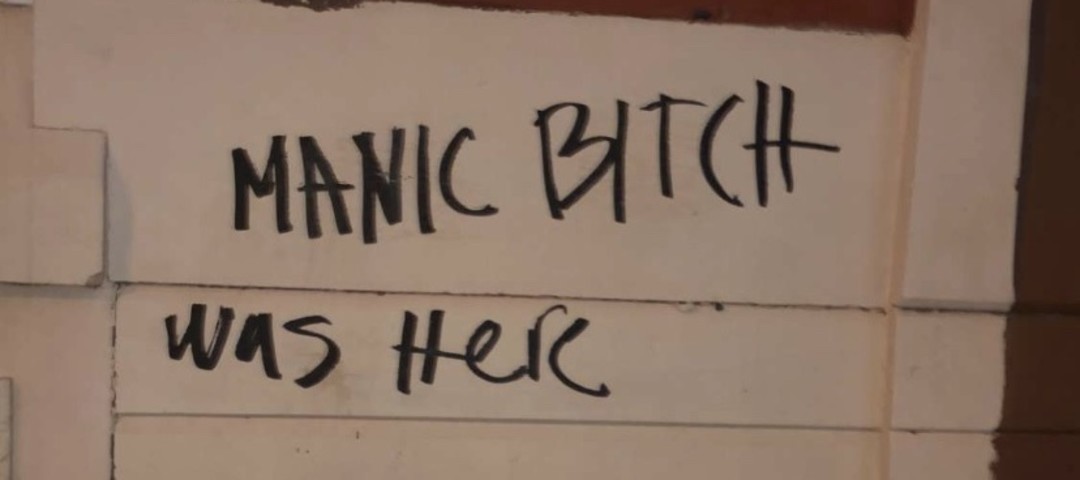 MANIC BITCH
was Here